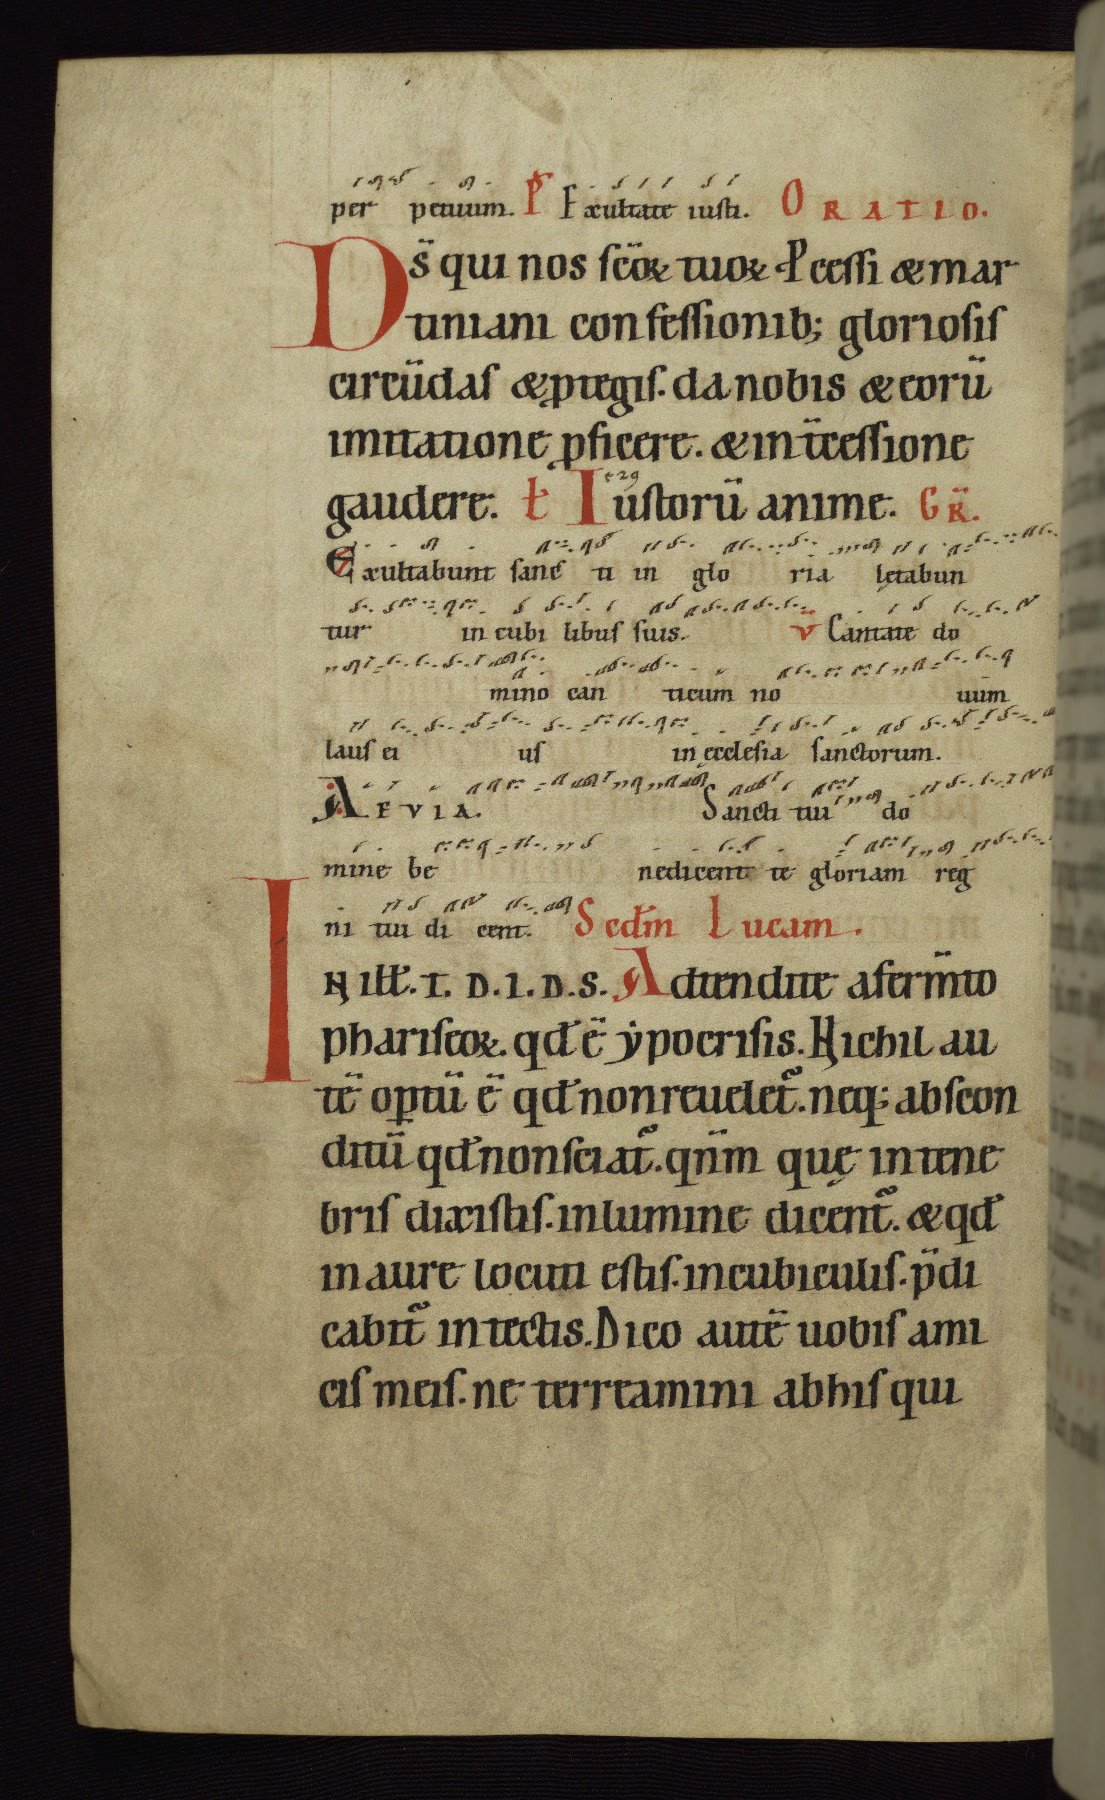 per petuum. P̄ Exultate iusti. ORATIO.
Ds̄ qui nos sc̄oꝝ tuoꝝ Pcessi & mar
tiniani confessionib; gloriosis
circū̄das & ꝓtegis. da nobis & eorū
imitatione ꝓficere. & int̄cessione
gaudere. ł Iustorū anime. GR̄.
Exultabunt sanc ti in glo ria lętabun
tur in cubi libus suis. v̄ Cantate do
mino can ticum no uum
laus ei us in ęcclesia sanctorum.
AEVIA. Sancti tui do
mine be nedicent te gloriam reg
ni tui di cent. Scdm̄ Lucam.
IN ill̄. T. D. I. D. S. Adtendite a ferm̄to
phariseoꝝ. qđ ē ẏpocrisis. Nichil au
tē opꝑtū ē qđ non reueletᷣ. neq; abscon
ditū qđ non sciatᷣ. qn̄m quę in tene
bris dixistis. in lumine dicentᷣ. & qđ
in aure locuti estis. in cubiculis. p̄di
cabitᷣ in tectis. Dico autē uobis ami
cis meis. ne terreamini ab his qui